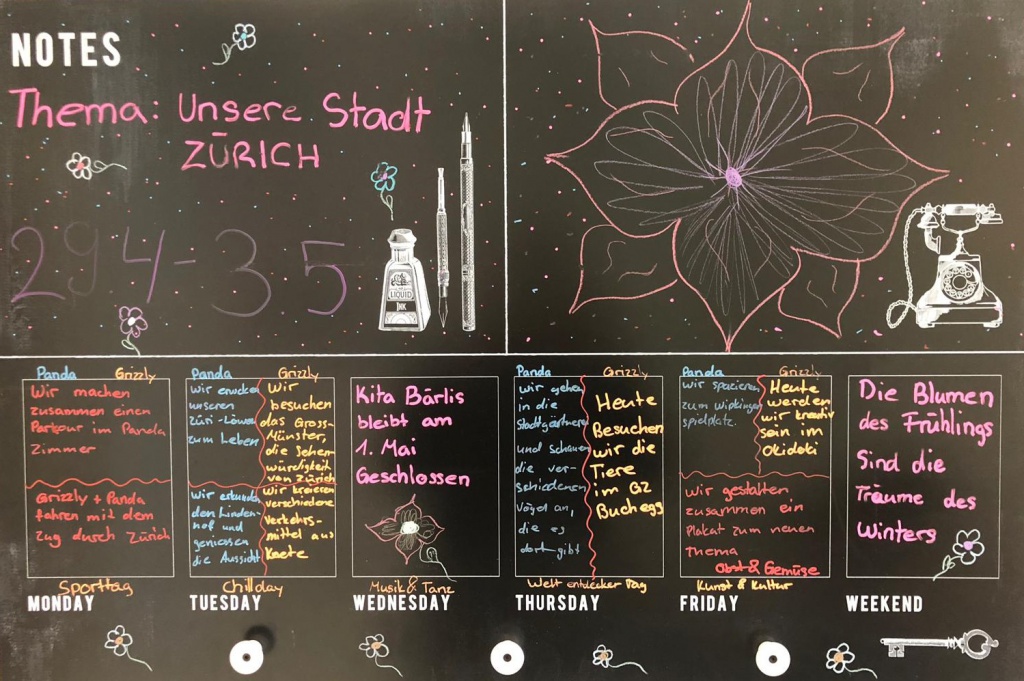 NOTES
Thema: Unsere Stadt
ZÜRICH
29 4-3 5
LIQUID
INK
Panda Grizzly
Wir machen
zusammen einen
Parkour im Panda
Zimmer
Grizzly + Panda
fahren mit dem
Zug durch Zürich
Sporttag
MONDAY
Panda
wir erwecken
unseren
Züri-Löwen
zum Leben
Grizzly
Wir
besuchen
das Gross-
Münster,
die Sehen-
würdigkeit
von Zürich
wir erkunden
den Linden-
hof und
geniessen
die Aussicht
Wir kreieren
verschiedene
Verkehrs-
mittel aus
Knete
Chillday
TUESDAY
Kita Bärlis
bleibt am
1. Mai
Geschlossen
Musik & Tanz
WEDNESDAY
Panda
wir gehen
in die
Stadtgärtnerei
und schauen
die ver-
schiedenen
Vögel an,
die es
dort gibt
Grizzly
Heute
Besuchen
wir die
Tiere
im GZ
Buchegg
Welt entdecker Tag
THURSDAY
Panda
wir spazieren
zum Wipkinger
spielplatz.
Grizzly
Heute
werden
wir kreativ
sein im
Okidoki
wir gestalten
zusammen ein
Plakat zum neuen
thema
Obst & Gemüse
Kunst & Kultur
FRIDAY
Die Blumen
des Frühlings
Sind die
Träume des
Winters
WEEKEND